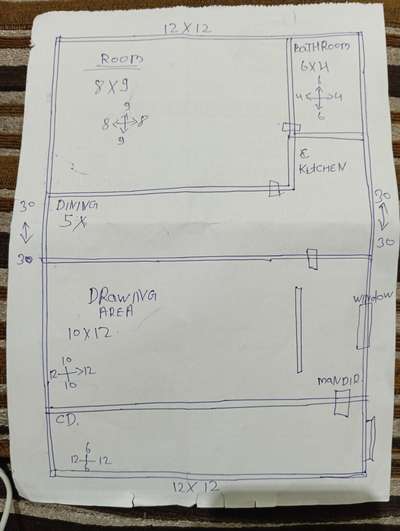 12 X 12
ROOM
8 X 9
9
8 8
9
BATHROOM
6 X 4
6
4 4
6
&
KITCHEN
DINING
5 X
30
30
30
30
DRAWING
AREA
10 X 12
10
12 12
10
window
MANDIR
CD.
6
12 12
6
12 X 12